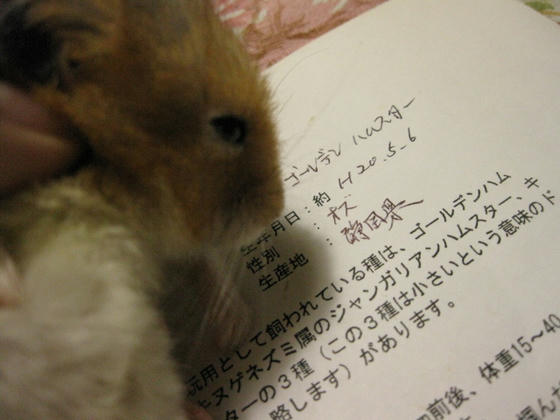 ゴールデン ハムスター
生年月日：約 H20.5-6
性別 : オス
生産地 : 静岡県
玩用として飼われている種は、ゴールデンハム
ヒヌゲネズミ属のジャンガリアンハムスター、キ
ターの３種（この３種は小さいという意味のド
略します）があります。
前後、体重15～40